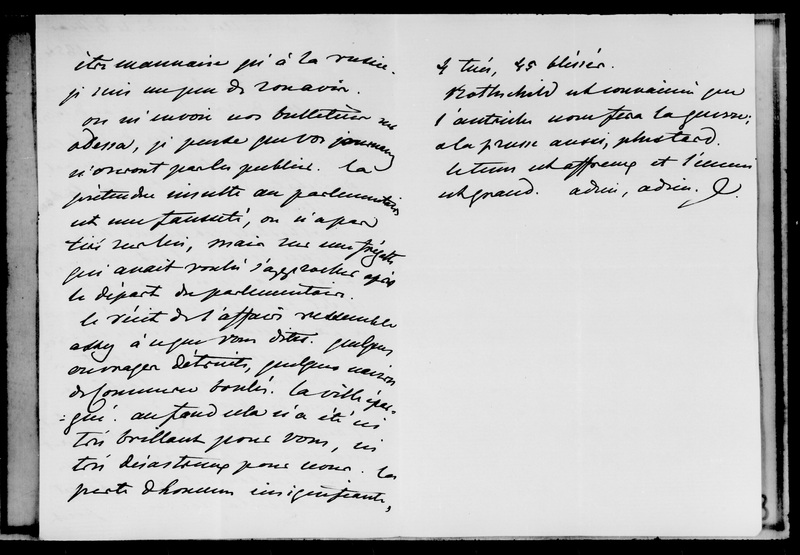 être mauvaise pr à la russie.
je suis un peu de son avis.
on m'envoie nos bulletins sur
odessa, je pense que vos journaux
n'oseront pas les publier. la
prétendue insulte au parlementaire
est une fausseté, on n'a pas
tiré sur lui, mais sur une frégate
qui avait voulu s'approcher après
le départ du parlementaire.
le récit de l'affaire ressemble
assez à ce que vous dites. quelques
ouvrages détruits, quelques navires
de commerce brulés. la ville épar-
=gné. au fond cela n'a été ni
très brillant pour vous, ni
très désastreux pour nous. la
perte d'hommes insignifiante,
4 tués, 45 blessés.
Rothschild est convaincu que
l'autriche nous fera la guerre;
a la prusse aussi, plus tard.
le tems est affreux et l'ennui
est grand. adieu, adieu.